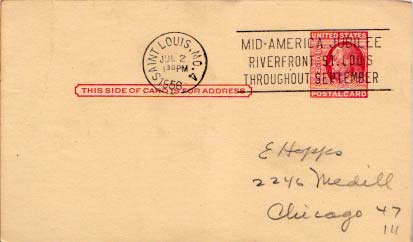 SAINT LOUIS, MO. 4
JUL 2
1 30 PM
1956
MID-AMERICA JUBILEE
RIVERFRONT ST. LOUIS
THROUGHOUT SEPTEMBER
UNITED STATES
POSTAL CARD
THIS SIDE OF CARD IS FOR ADDRESS
E Hopps
2246 Medill
Chicago 47
Ill